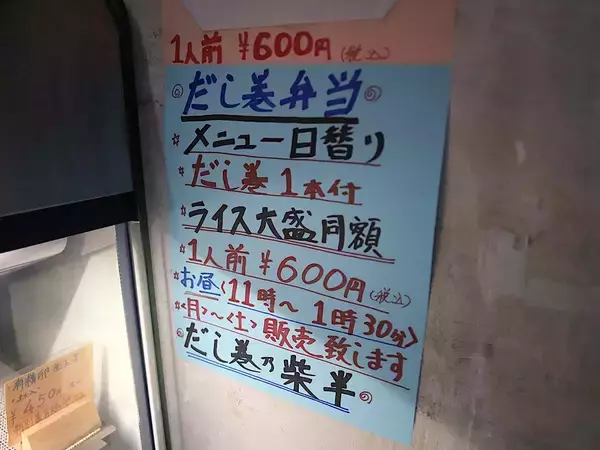 1人前 ¥600円(税込)
◎だし巻弁当◎
☆メニュー日替り
☆だし巻1本付
☆ライス大盛同額
☆1人前¥600円(税込)
☆お昼〈11時〜1時30分〉
☆〈月〉〜〈土〉販売致します
◎だし巻乃柴半◎
¥450